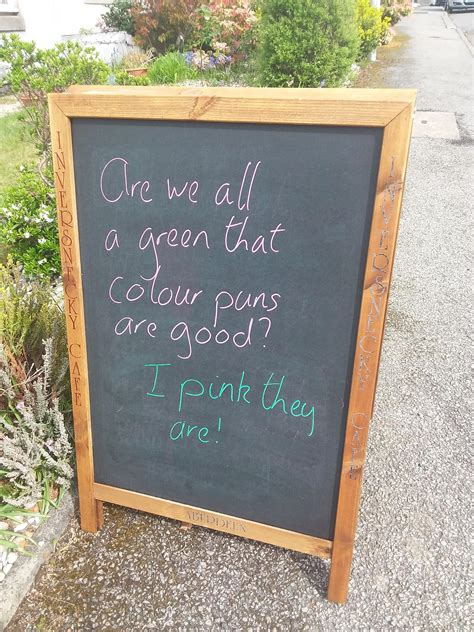 Are we all
a green that
colour puns
are good?
I pink they
are!
INVERSNECKY CAFE
INVERSNECKY CAFE
ABERDEEN